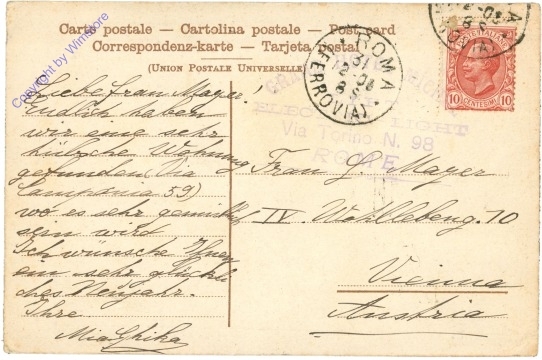 Carte postale — Cartolina postale — Post card
Correspondenz-karte — Tarjeta postal
(UNION POSTALE UNIVERSELLE)
Copyright by Winmore
ROMA
(FERROVIA)
31
12-08
8 S
POSTE ITALIANE
10 CENTESIMI 10
ELECTRIC LIGHT
Via Torino N. 98
ROME
Liebe Frau Mayer!
Endlich haben
wir eine sehr
hübsche Wohnung
gefunden (Via
Campania 59)
wo es sehr gemütlich
sein wird
Ich wünsche Ihnen
ein sehr glückli
ches Neujahr.
Ihre
Mia Ghika
Frau G. Mayer
IV. Wohllebeng. 10
Vienna
Austria